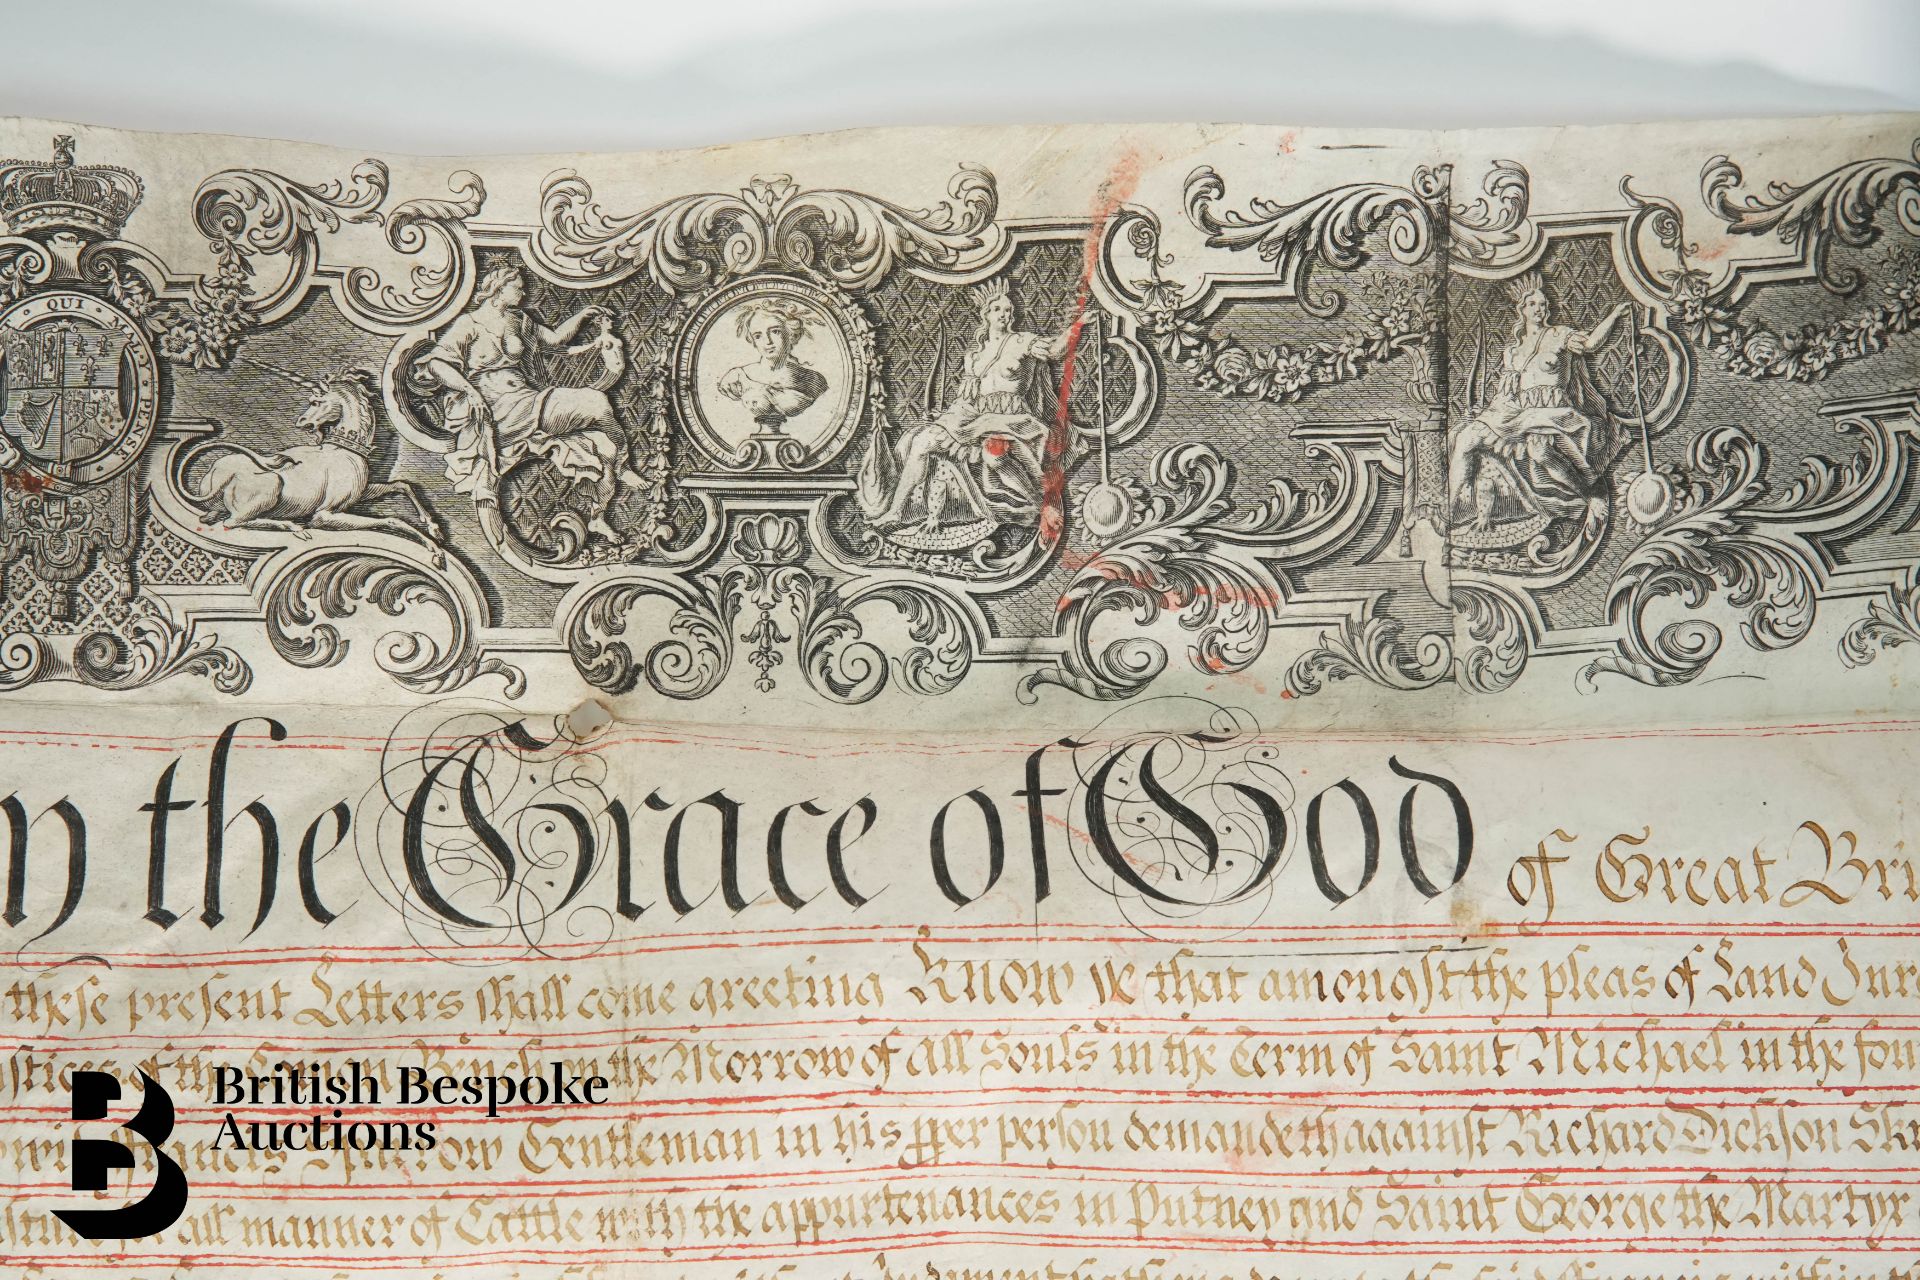 QUI MAL Y PENSE
y the Grace of God of Great Bri
these present Letters shall come greeting Know ye that amongst the pleas of Land Inr
stices of the Comon Bench on the Morrow of All Souls in the Term of Saint Michael in the fou
Francis Sparrow Gentleman in his pper person demandeth against Richard Dickson
all manner of Cattle with the appurtenances in Putney and Saint George the Martyr
British Bespoke
Auctions